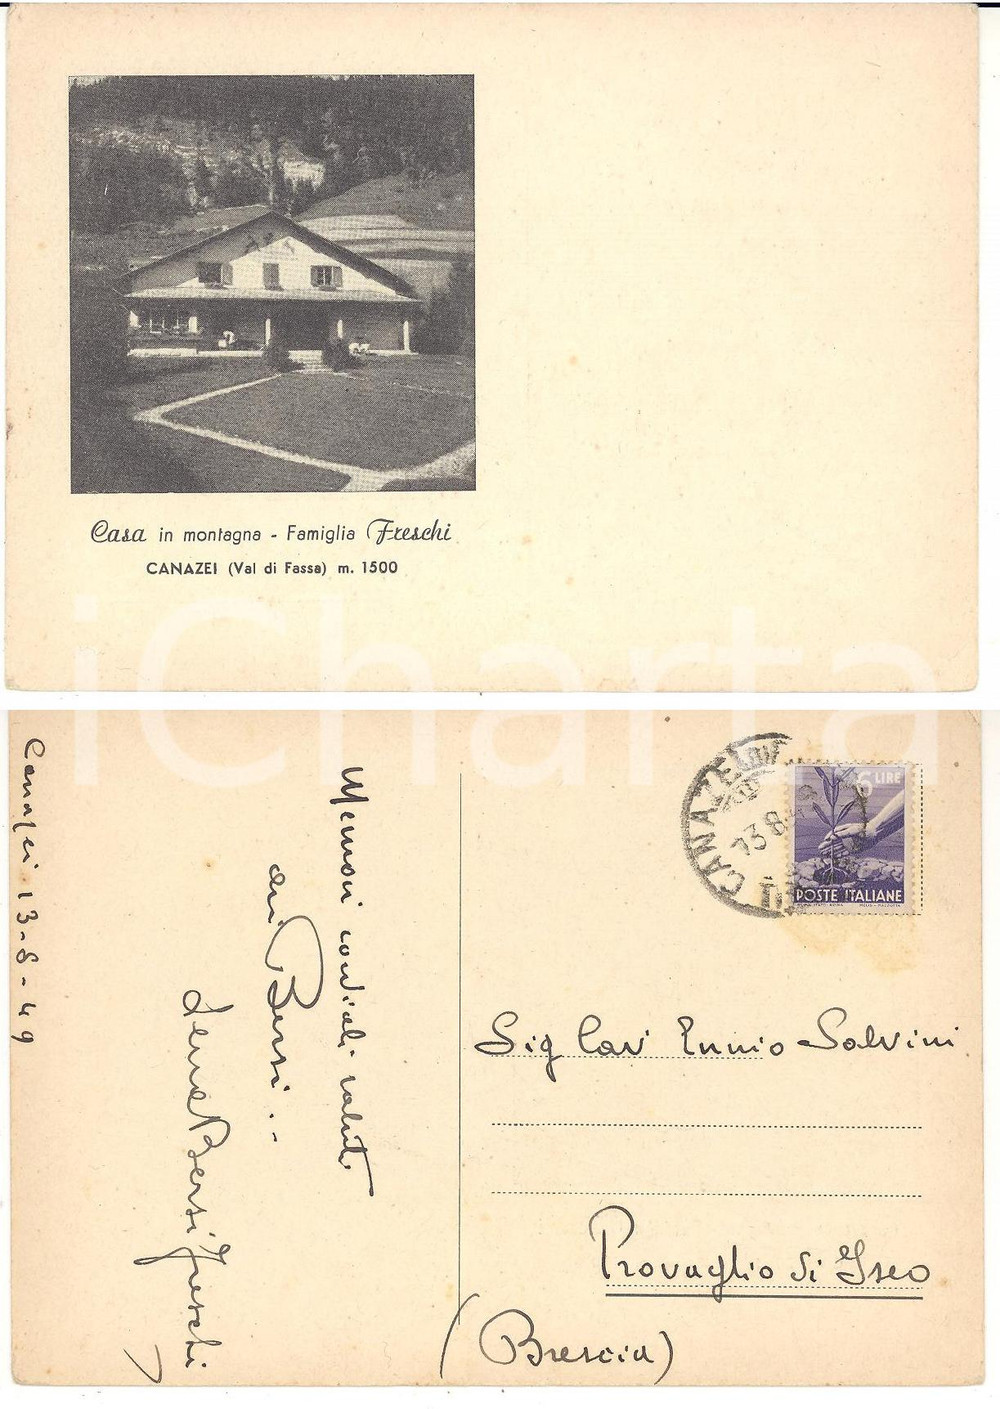 Casa in montagna - Famiglia Freschi
CANAZEI (Val di Fassa) m. 1500
iCharta
Canazei 13-8-49
Memori cordiali saluti
dai Bersi . -
Bersi Freschi
CANAZEI
13.8.49
6 LIRE
POSTE ITALIANE
Sig Cav Ennio Salvini
Provaglio di Iseo
(Brescia)